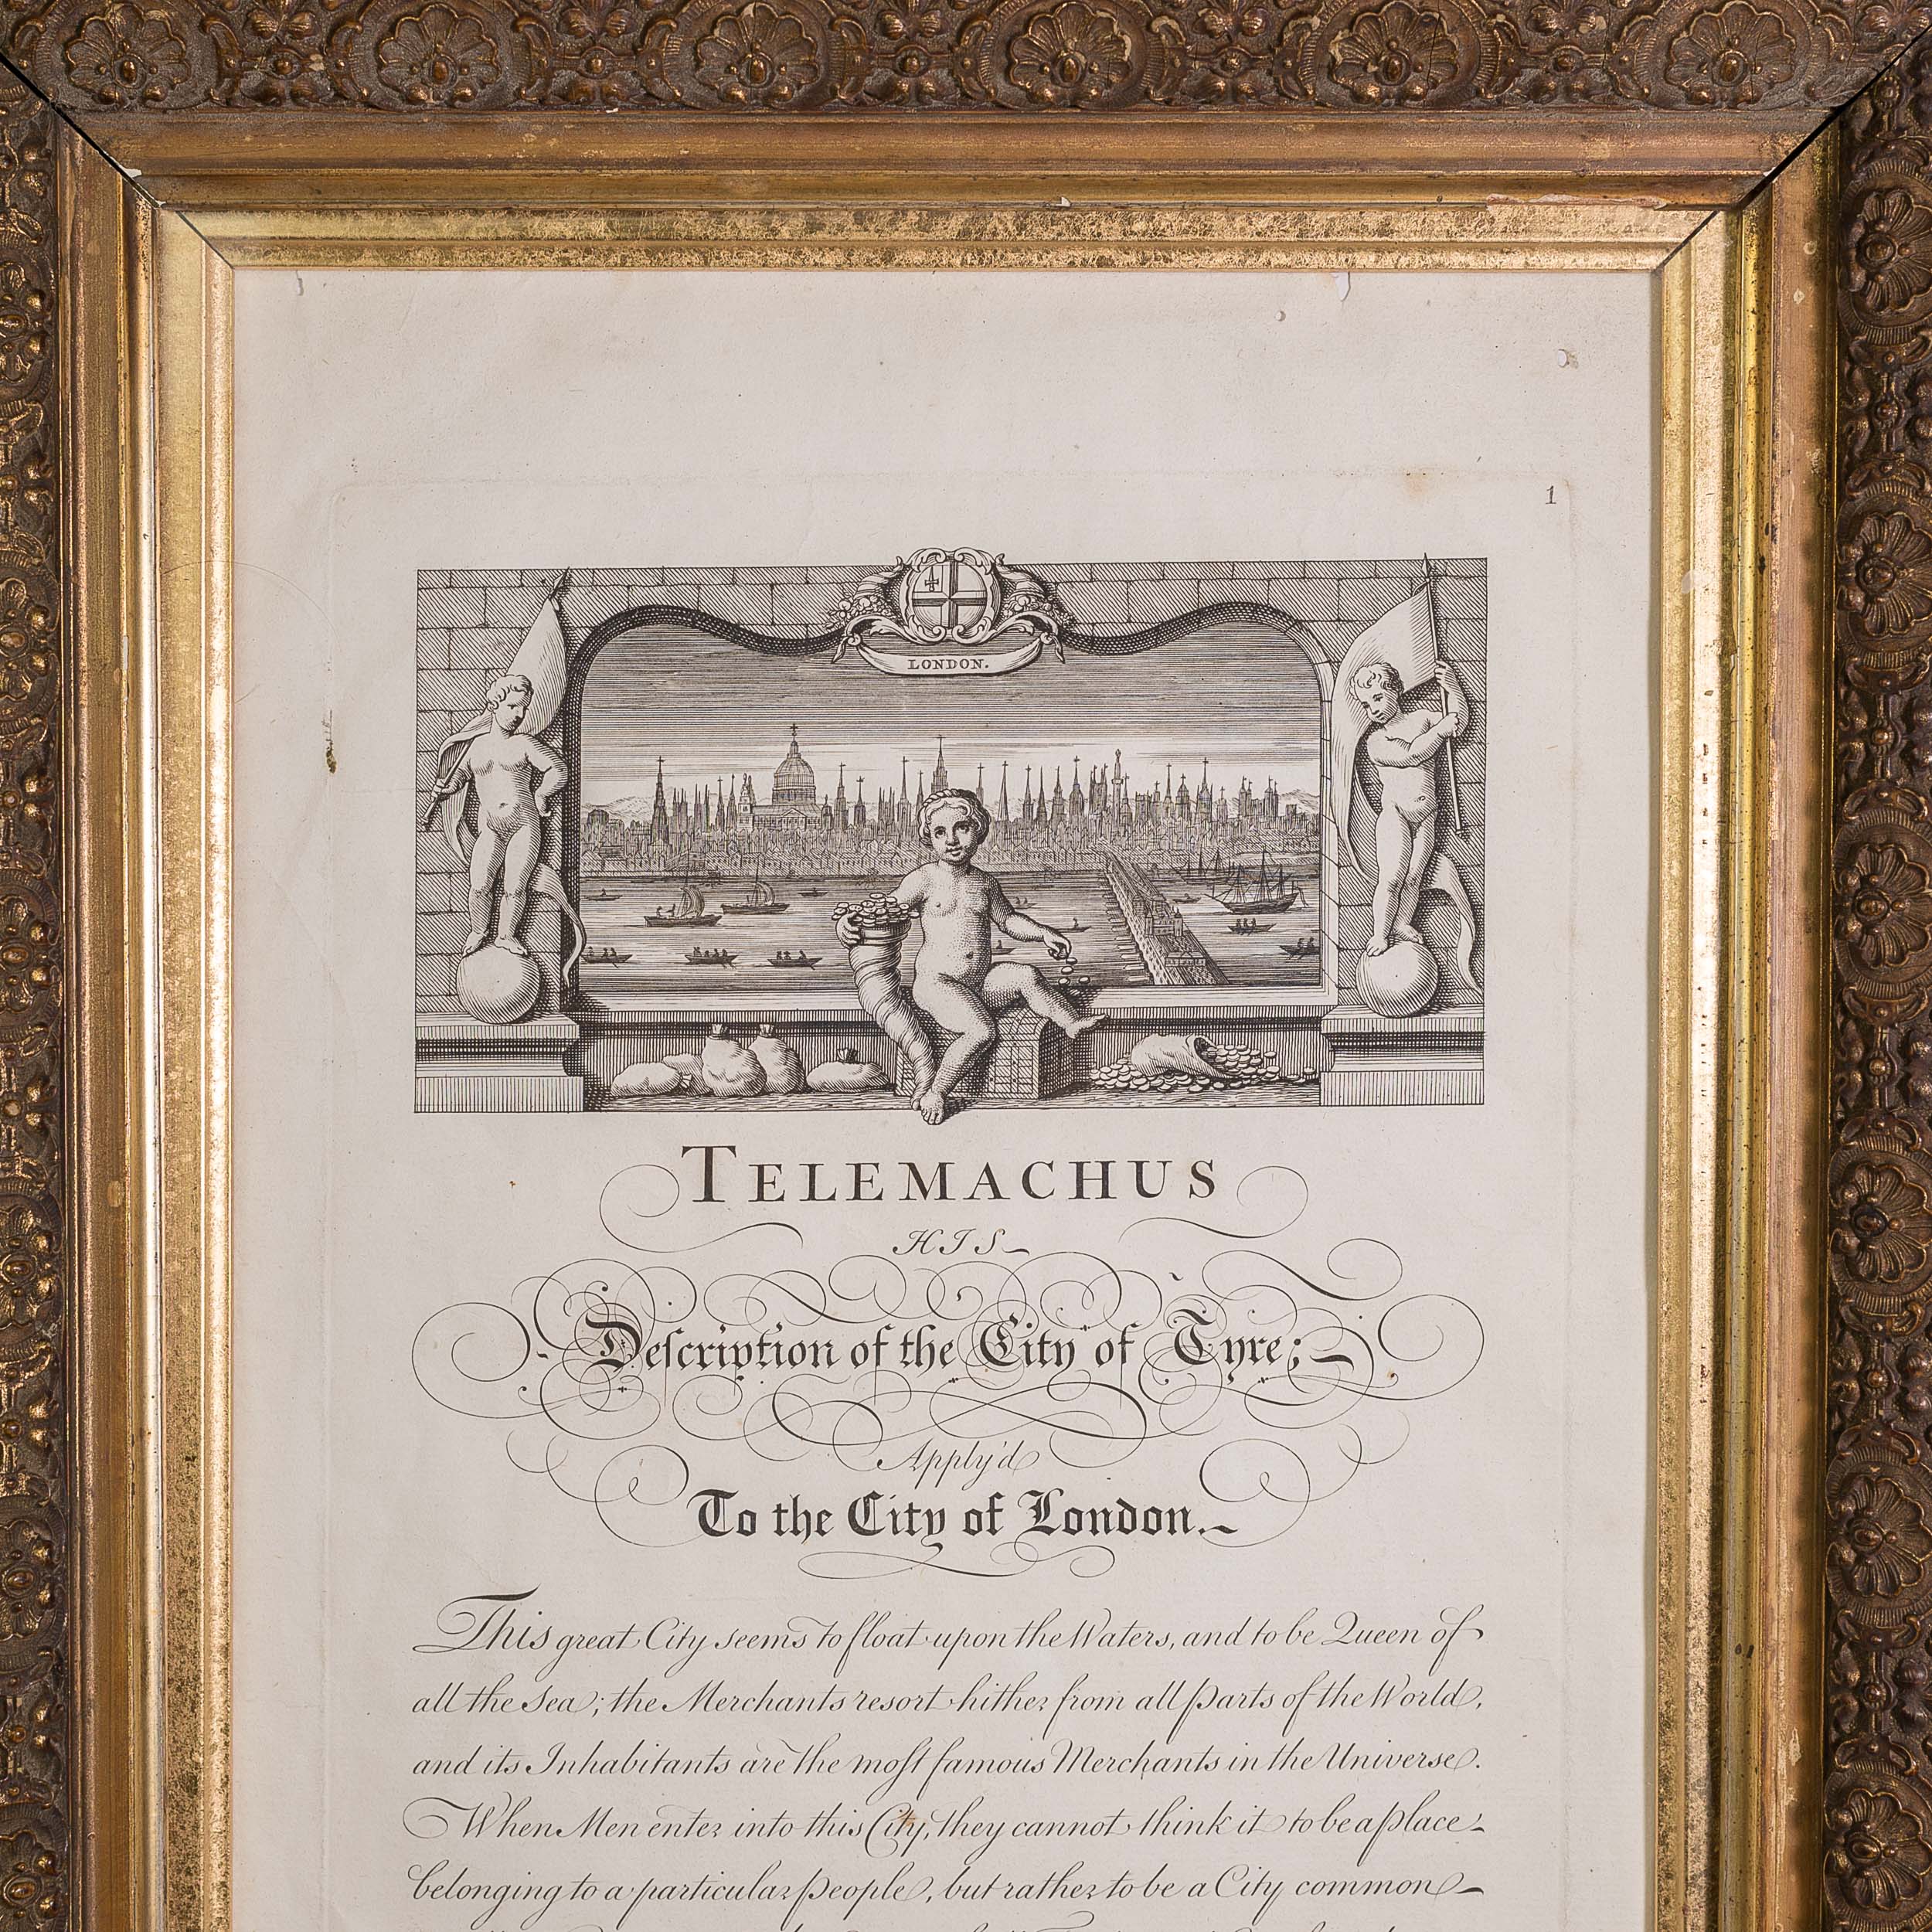 1
LONDON.
TELEMACHUS
HIS
Deſcription of the City of Tyre;
Apply'd
To the City of London.
This great City seems to float upon the Waters, and to be Queen of
all the Sea; the Merchants resort hither from all parts of the World,
and its Inhabitants are the moſt famous Merchants in the Universe.
When Men enter into this City, they cannot think it to be a place
belonging to a particular people, but rather to be a City common